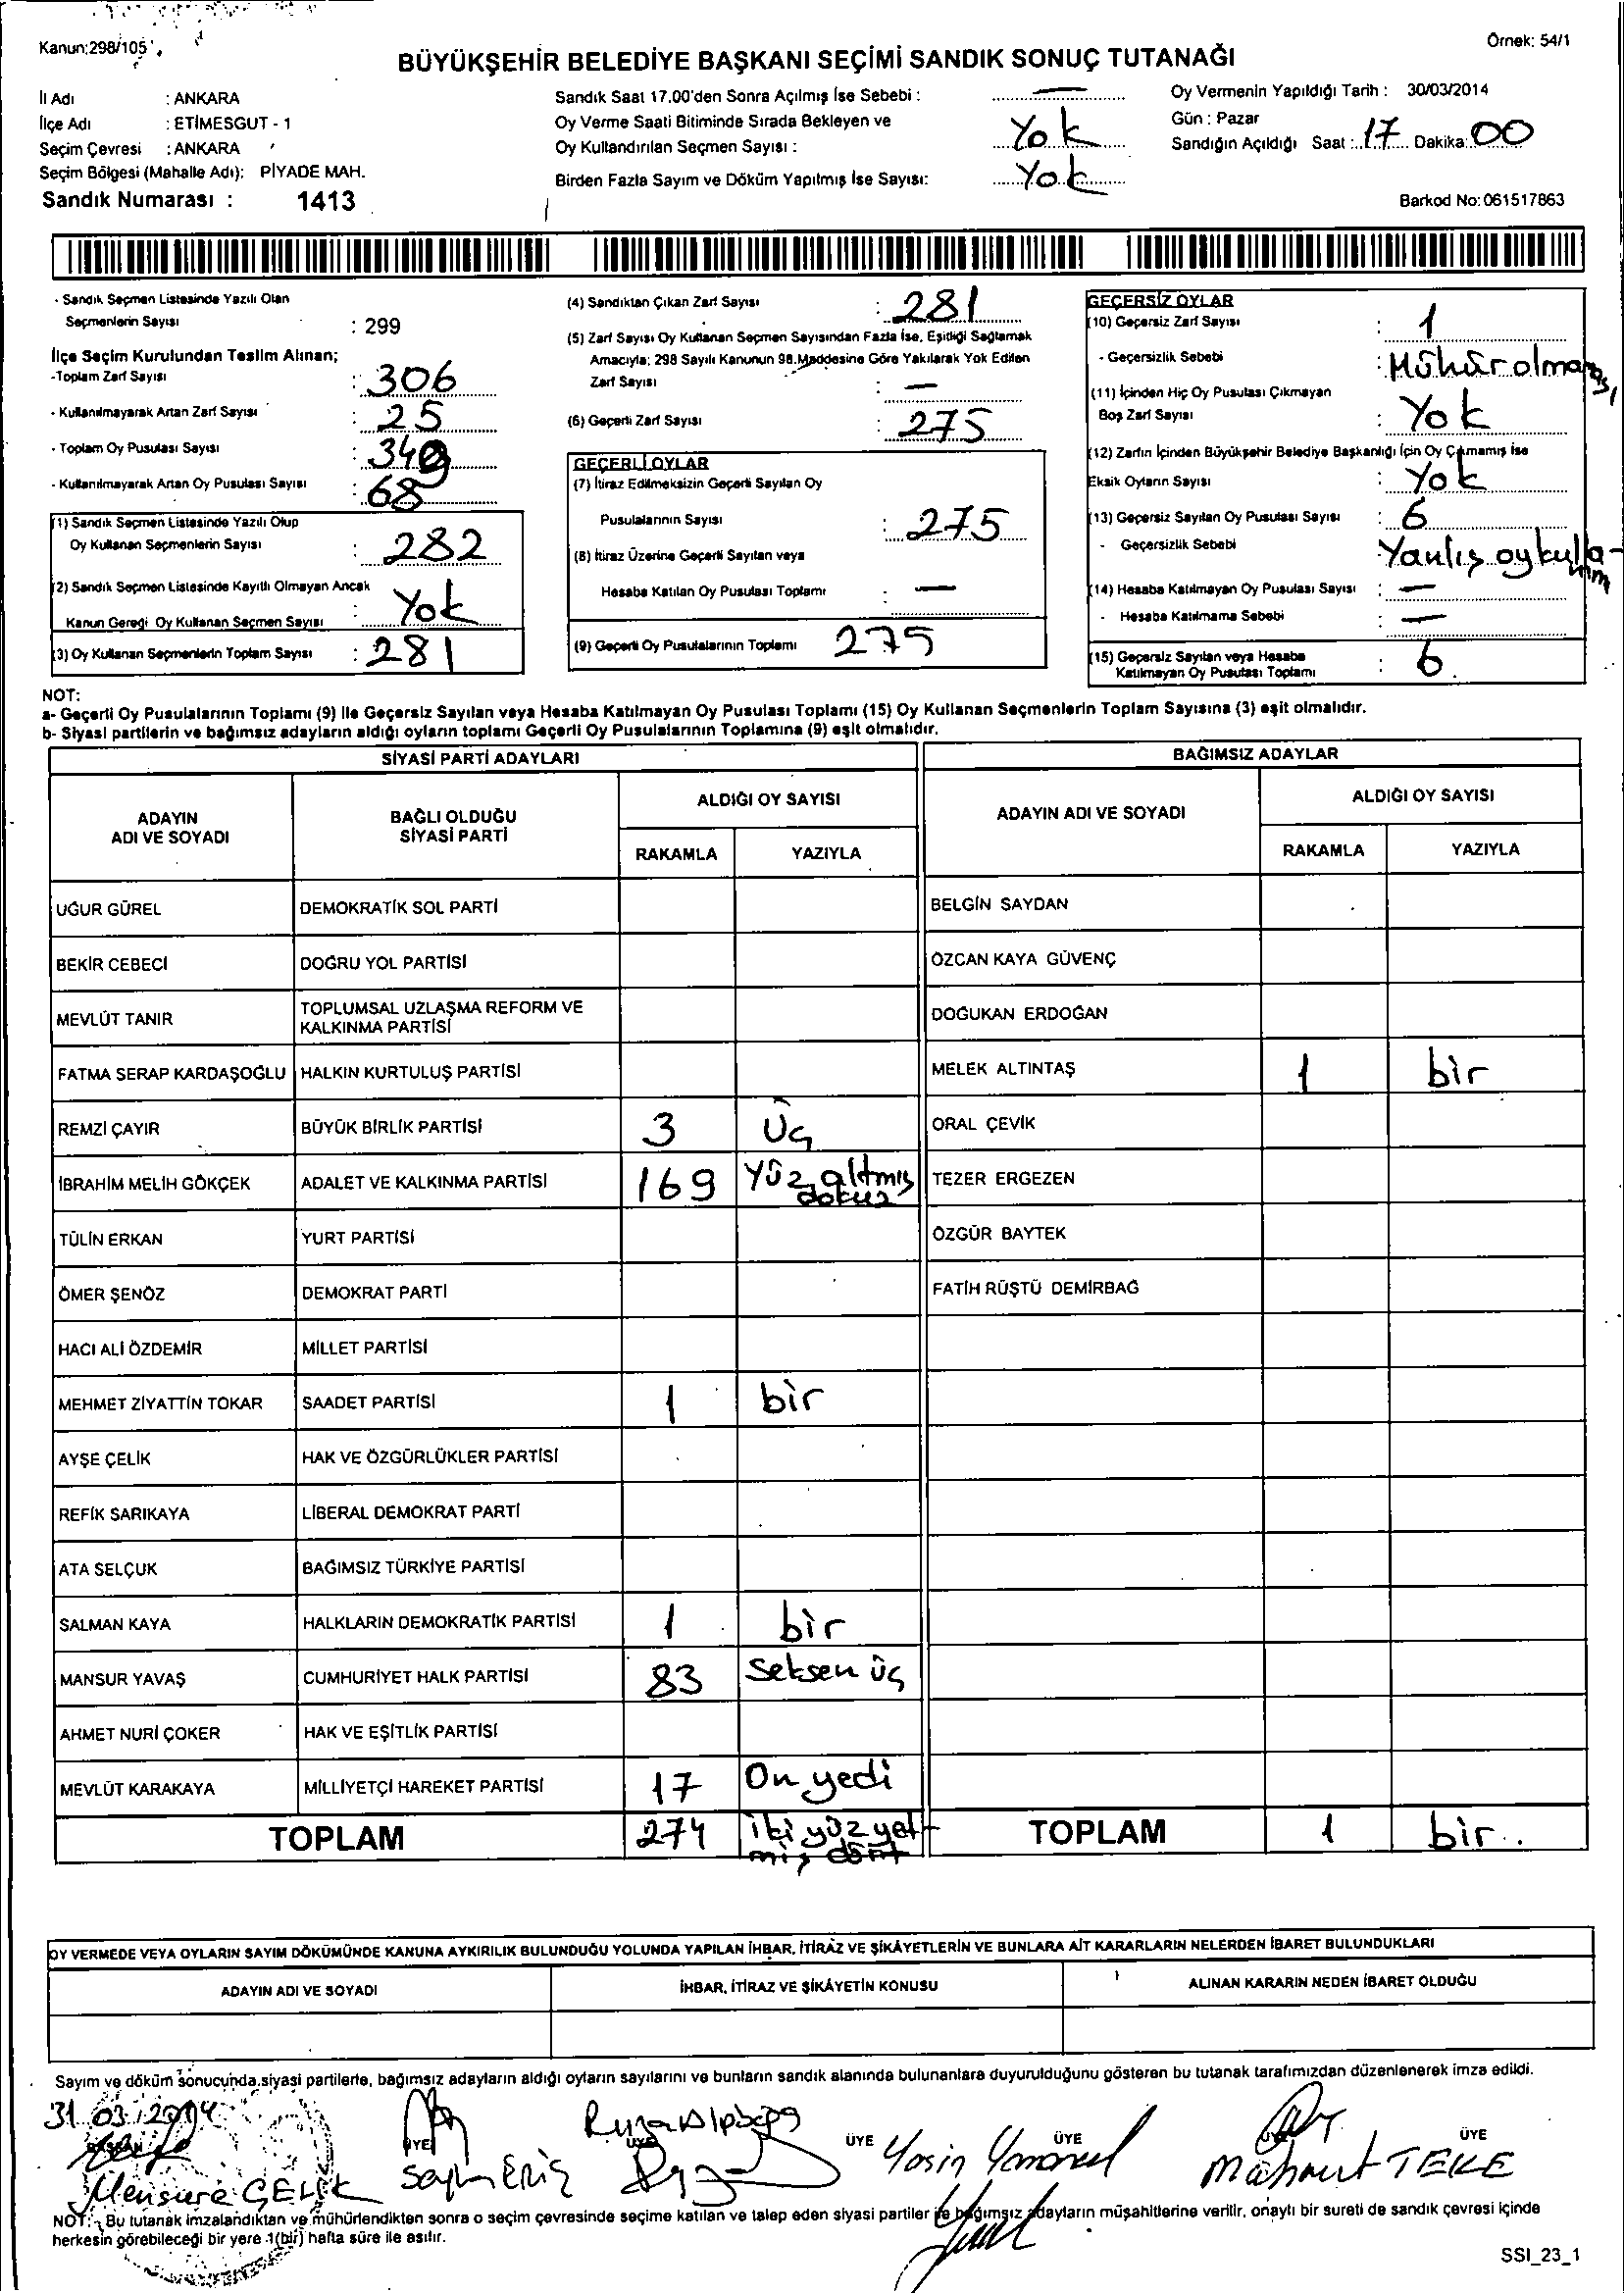 Kanun:298/105
Örnek: 54/1
BÜYÜKŞEHİR BELEDİYE BAŞKANI SEÇİMİ SANDIK SONUÇ TUTANAĞI
İl Adı : ANKARA
İlçe Adı : ETİMESGUT - 1
Seçim Çevresi : ANKARA
Seçim Bölgesi (Mahalle Adı): PİYADE MAH.
Sandık Numarası : 1413
Sandık Saat 17.00'den Sonra Açılmış İse Sebebi : —
Oy Verme Saati Bitiminde Sırada Bekleyen ve
Oy Kullandırılan Seçmen Sayısı : Yok
Birden Fazla Sayım ve Döküm Yapılmış İse Sayısı: Yok
Oy Vermenin Yapıldığı Tarih : 30/03/2014
Gün : Pazar
Sandığın Açıldığı Saat : 17 Dakika: 00
Barkod No: 061517863
- Sandık Seçmen Listesinde Yazılı Olan
Seçmenlerin Sayısı : 299
İlçe Seçim Kurulundan Teslim Alınan;
-Toplam Zarf Sayısı : 306
- Kullanılmayarak Artan Zarf Sayısı : 25
- Toplam Oy Pusulası Sayısı : 349
- Kullanılmayarak Artan Oy Pusulası Sayısı : 68
(1) Sandık Seçmen Listesinde Yazılı Olup
Oy Kullanan Seçmenlerin Sayısı : 282
(2) Sandık Seçmen Listesinde Kayıtlı Olmayan Ancak
Kanun Gereği Oy Kullanan Seçmen Sayısı : Yok
(3) Oy Kullanan Seçmenlerin Toplam Sayısı : 281
(4) Sandıktan Çıkan Zarf Sayısı : 281
(5) Zarf Sayısı Oy Kullanan Seçmen Sayısından Fazla İse, Eşitliği Sağlamak
Amacıyla; 298 Sayılı Kanunun 98.Maddesine Göre Yakılarak Yok Edilen
Zarf Sayısı : —
(6) Geçerli Zarf Sayısı : 275
GEÇERLİ OYLAR
(7) İtiraz Edilmeksizin Geçerli Sayılan Oy
Pusulalarının Sayısı : 275
(8) İtiraz Üzerine Geçerli Sayılan veya
Hesaba Katılan Oy Pusulası Toplamı : —
(9) Geçerli Oy Pusulalarının Toplamı 275
GEÇERSİZ OYLAR
(10) Geçersiz Zarf Sayısı : 1
- Geçersizlik Sebebi : Mühür olmaması
(11) İçinden Hiç Oy Pusulası Çıkmayan
Boş Zarf Sayısı : Yok
(12) Zarfın İçinden Büyükşehir Belediye Başkanlığı İçin Oy Çıkmamış İse
Eksik Oyların Sayısı : Yok
(13) Geçersiz Sayılan Oy Pusulası Sayısı : 6
- Geçersizlik Sebebi : Yanlış oy kulla-
nım
(14) Hesaba Katılmayan Oy Pusulası Sayısı : —
- Hesaba Katılmama Sebebi : —
(15) Geçersiz Sayılan veya Hesaba
Katılmayan Oy Pusulası Toplamı : 6
NOT:
a- Geçerli Oy Pusulalarının Toplamı (9) ile Geçersiz Sayılan veya Hesaba Katılmayan Oy Pusulası Toplamı (15) Oy Kullanan Seçmenlerin Toplam Sayısına (3) eşit olmalıdır.
b- Siyasi partilerin ve bağımsız adayların aldığı oyların toplamı Geçerli Oy Pusulalarının Toplamına (9) eşit olmalıdır.
SİYASİ PARTİ ADAYLARI
ADAYIN
ADI VE SOYADI
BAĞLI OLDUĞU
SİYASİ PARTİ
ALDIĞI OY SAYISI
RAKAMLA YAZIYLA
UĞUR GÜREL DEMOKRATİK SOL PARTİ
BEKİR CEBECİ DOĞRU YOL PARTİSİ
MEVLÜT TANIR TOPLUMSAL UZLAŞMA REFORM VE
KALKINMA PARTİSİ
FATMA SERAP KARDAŞOĞLU HALKIN KURTULUŞ PARTİSİ
REMZİ ÇAYIR BÜYÜK BİRLİK PARTİSİ 3 Üç
İBRAHİM MELİH GÖKÇEK ADALET VE KALKINMA PARTİSİ 169 Yüz altmış
dokuz
TÜLİN ERKAN YURT PARTİSİ
ÖMER ŞENÖZ DEMOKRAT PARTİ
HACI ALİ ÖZDEMİR MİLLET PARTİSİ
MEHMET ZİYATTİN TOKAR SAADET PARTİSİ 1 bir
AYŞE ÇELİK HAK VE ÖZGÜRLÜKLER PARTİSİ
REFİK SARIKAYA LİBERAL DEMOKRAT PARTİ
ATA SELÇUK BAĞIMSIZ TÜRKİYE PARTİSİ
SALMAN KAYA HALKLARIN DEMOKRATİK PARTİSİ 1 bir
MANSUR YAVAŞ CUMHURİYET HALK PARTİSİ 83 Seksen üç
AHMET NURİ ÇOKER HAK VE EŞİTLİK PARTİSİ
MEVLÜT KARAKAYA MİLLİYETÇİ HAREKET PARTİSİ 17 On yedi
TOPLAM 274 iki yüz yet-
miş dört
BAĞIMSIZ ADAYLAR
ADAYIN ADI VE SOYADI
ALDIĞI OY SAYISI
RAKAMLA YAZIYLA
BELGİN SAYDAN
ÖZCAN KAYA GÜVENÇ
DOĞUKAN ERDOĞAN
MELEK ALTINTAŞ 1 bir
ORAL ÇEVİK
TEZER ERGEZEN
ÖZGÜR BAYTEK
FATİH RÜŞTÜ DEMİRBAĞ
TOPLAM 1 bir
OY VERMEDE VEYA OYLARIN SAYIM DÖKÜMÜNDE KANUNA AYKIRILIK BULUNDUĞU YOLUNDA YAPILAN İHBAR, İTİRAZ VE ŞİKÂYETLERİN VE BUNLARA AİT KARARLARIN NELERDEN İBARET BULUNDUKLARI
ADAYIN ADI VE SOYADI İHBAR, İTİRAZ VE ŞİKÂYETİN KONUSU ALINAN KARARIN NEDEN İBARET OLDUĞU
Sayım ve döküm sonucunda siyasi partilerle, bağımsız adayların aldığı oyların sayılarını ve bunların sandık alanında bulunanlara duyurulduğunu gösteren bu tutanak tarafımızdan düzenlenerek imza edildi.
31 03 2014
BAŞKAN ÜYE ÜYE ÜYE ÜYE ÜYE ÜYE
Mensure ÇELİK Yasin Mahmut TEKE
NOT: Bu tutanak imzalandıktan ve mühürlendikten sonra o seçim çevresinde seçime katılan ve talep eden siyasi partiler ile bağımsız adayların müşahitlerine verilir, onaylı bir sureti de sandık çevresi içinde
herkesin görebileceği bir yere 1(bir) hafta süre ile asılır.
SSI_23_1